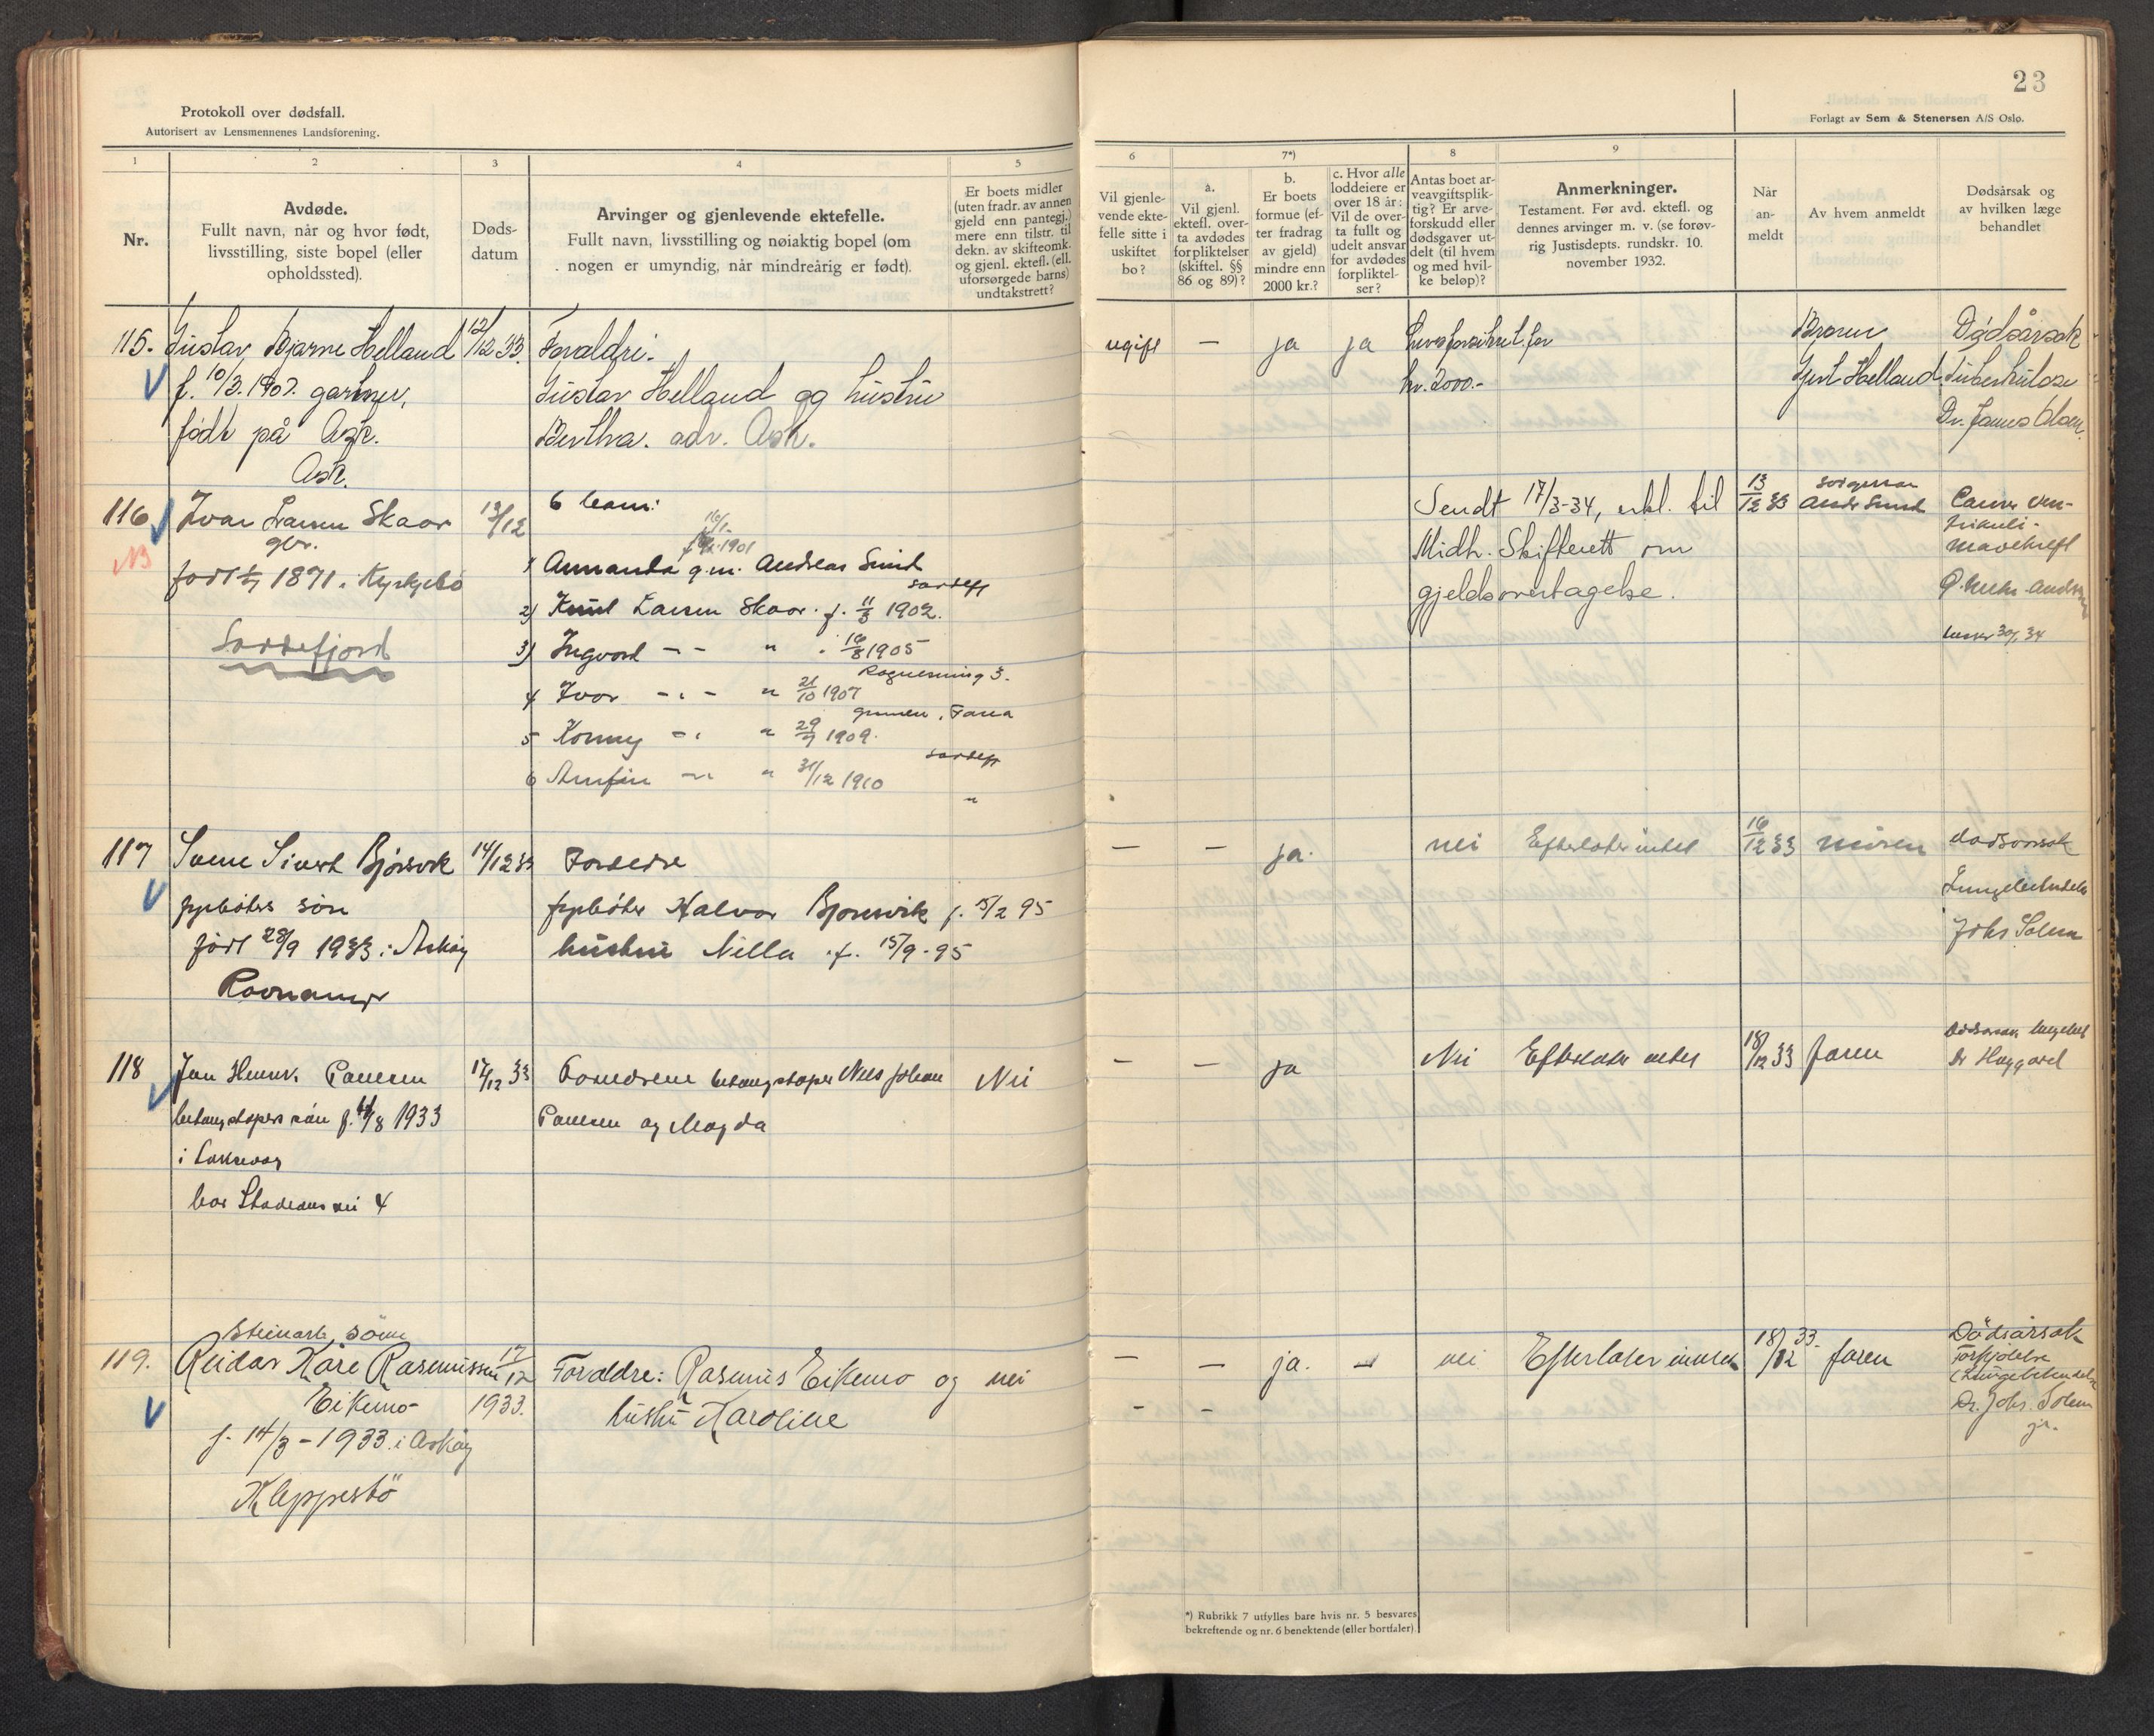 23
Protokoll over dødsfall.
Autorisert av Lensmennenes Landsforening.
Forlagt av Sem & Stenersen A/S Oslo.
1
2
3
4
5
6
7*)
8
9
Nr.
Avdøde.
Fullt navn, når og hvor født,
livsstilling, siste bopel (eller
opholdssted).
Døds-
datum
Arvinger og gjenlevende ektefelle.
Fullt navn, livsstilling og nøiaktig bopel (om
nogen er umyndig, når mindreårig er født).
Er boets midler
(uten fradr. av annen
gjeld enn pantegj.)
mere enn tilstr. til
dekn. av skifteomk.
og gjenl. ektefl. (ell.
uforsørgede barns)
undtakstrett?
Vil gjenle-
vende ekte-
felle sitte i
uskiftet
bo?
a.
Vil gjenl.
ektefl. over-
ta avdødes
forpliktelser
(skiftel. §§
86 og 89)?
b.
Er boets
formue (ef-
ter fradrag
av gjeld)
mindre enn
2000 kr.?
c. Hvor alle
loddeiere er
over 18 år:
Vil de over-
ta fullt og
udelt ansvar
for avdødes
forpliktel-
ser?
Antas boet ar-
veavgiftsplik-
tig? Er arve-
forskudd eller
dødsgaver ut-
delt (til hvem
og med hvil-
ke beløp)?
Anmerkninger.
Testament. Før avd. ektefl. og
dennes arvinger m. v. (se forøv-
rig Justisdepts. rundskr. 10.
november 1932.
Når
an-
meldt
Av hvem anmeldt
Dødsårsak og
av hvilken læge
behandlet
115. Gustav Bjarne Helland 12/12 33. Foraldri. ugift — ja ja Livsforsikret for Broren Dødsårsak
f. 10/3. 1907. gartner, Gustav Helland og hustru kr. 2000.- Gjert Helland Tuberkulose
født på Ask. Bertha. adr. Ask. Dr. James Olsen
Ask.
116 Ivar Larsen Skaar 13/12 6 barn: Sendt 17/3-34, erkl. til 13/12 33 Cancer ven-
gbr. 16/1- 1901 Midh. Skifterett om trikuli-
NB født 1871 i Kyrkjebø 1 Annanda g.m. Andreas gjeldsovertagelse. mavekreft
2) Knut Larsen Skaar f. 11/3 1902.
Sordefjord 3) Ingvard — - " 16/8 1905
4 Ivar - " - " 21/10 1907
5 Konny - " " 29/7 1909.
6 Arnfin - " " 31/12 1910
117 Sverre Sivert Bjørsvik 14/12 33 Foreldre — — ja. nei Efterlater intet 16/12 33 moren dødsorsak
fyrbøters søn fyrbøter Halvor Bjørsvik f. 15/2 95 Lungebetendelse
født 28/9 1933 i Askøy hustru Nilla f. 15/9-95 Johs Solem
Ravnanger
118 Jan Henrik Paulsen 17/12 33 Foreldrene betongstøper Nils Johan Nei — — ja Nei Efterlater intet 18/12 33 faren
betongstøpers søn f. 1933 Paulsen og Magda Dr Haggard
i Laksevag
bor Stadionvei 4
Steinarb. sönn
119. Reidar Kåre Rasmussen 17/12 Foraldre: Rasmus Eikemo og nei — — ja. — nei Efterlater intet 18/12 33. faren Dødsårsak
Eikemo 1933. hustru Karoline — — Forkjølelse
f. 14/3-1933. i Askøy (Lungebetendelse
Kleppestö Dr. Johs. Solem
jr.
*) Rubrikk 7 utfylles bare hvis nr. 5 besvares
bekreftende og nr. 6 benektende (eller bortfaler).